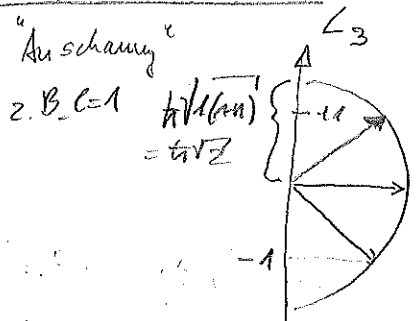 "Anschauung"
L₃
z.B. l=1 ħ√1(1+1)
= ħ√2
+1
-1